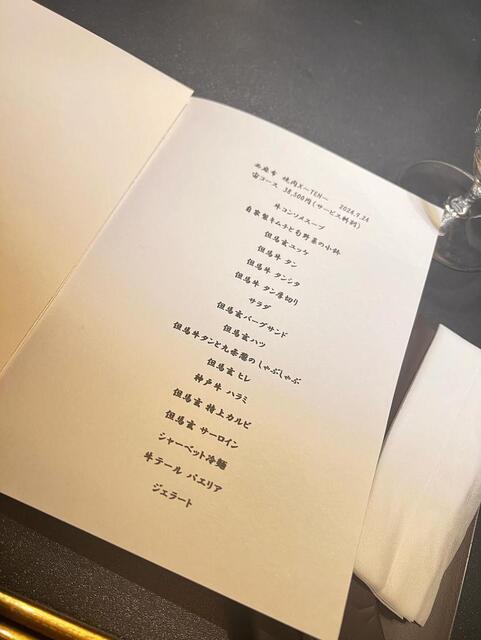 西麻布 焼肉X－TEN－ 2024.9.24
宙コース 38,500円(サービス料別)
牛コンソメスープ
自家製キムチと旬野菜の小鉢
但馬玄ユッケ
但馬牛 タン
但馬牛 タンシタ
但馬牛 タン厚切り
サラダ
但馬玄バーグサンド
但馬玄ハツ
但馬牛タンと九条葱のしゃぶしゃぶ
但馬玄 ヒレ
神戸牛 ハラミ
但馬玄 特上カルビ
但馬玄 サーロイン
シャーベット冷麺
牛テール パエリア
ジェラート